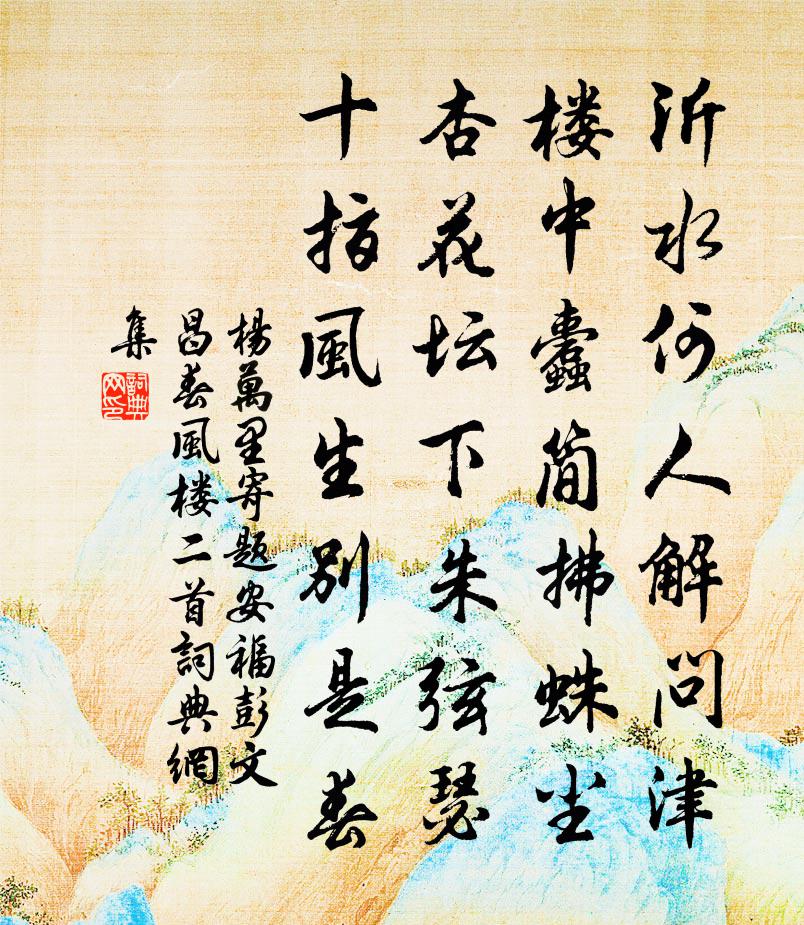 沂水何人解问津
楼中蠹简拂蛛尘
杏花坛下朱弦瑟
十指風生别是春
楊萬里寄題安福彭文
昌春風楼二首詞典網
集
詞典網印